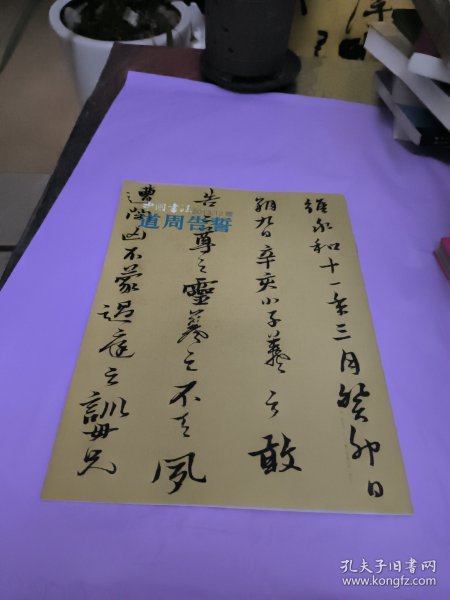 維永和十一年三月癸卯日
朔九日辛亥小子羲之敢
告二尊之靈羲之不天夙
遭閔凶不蒙過庭之訓母兄
中国书法
道周告誓
孔夫子旧书网
www.kongfz.com